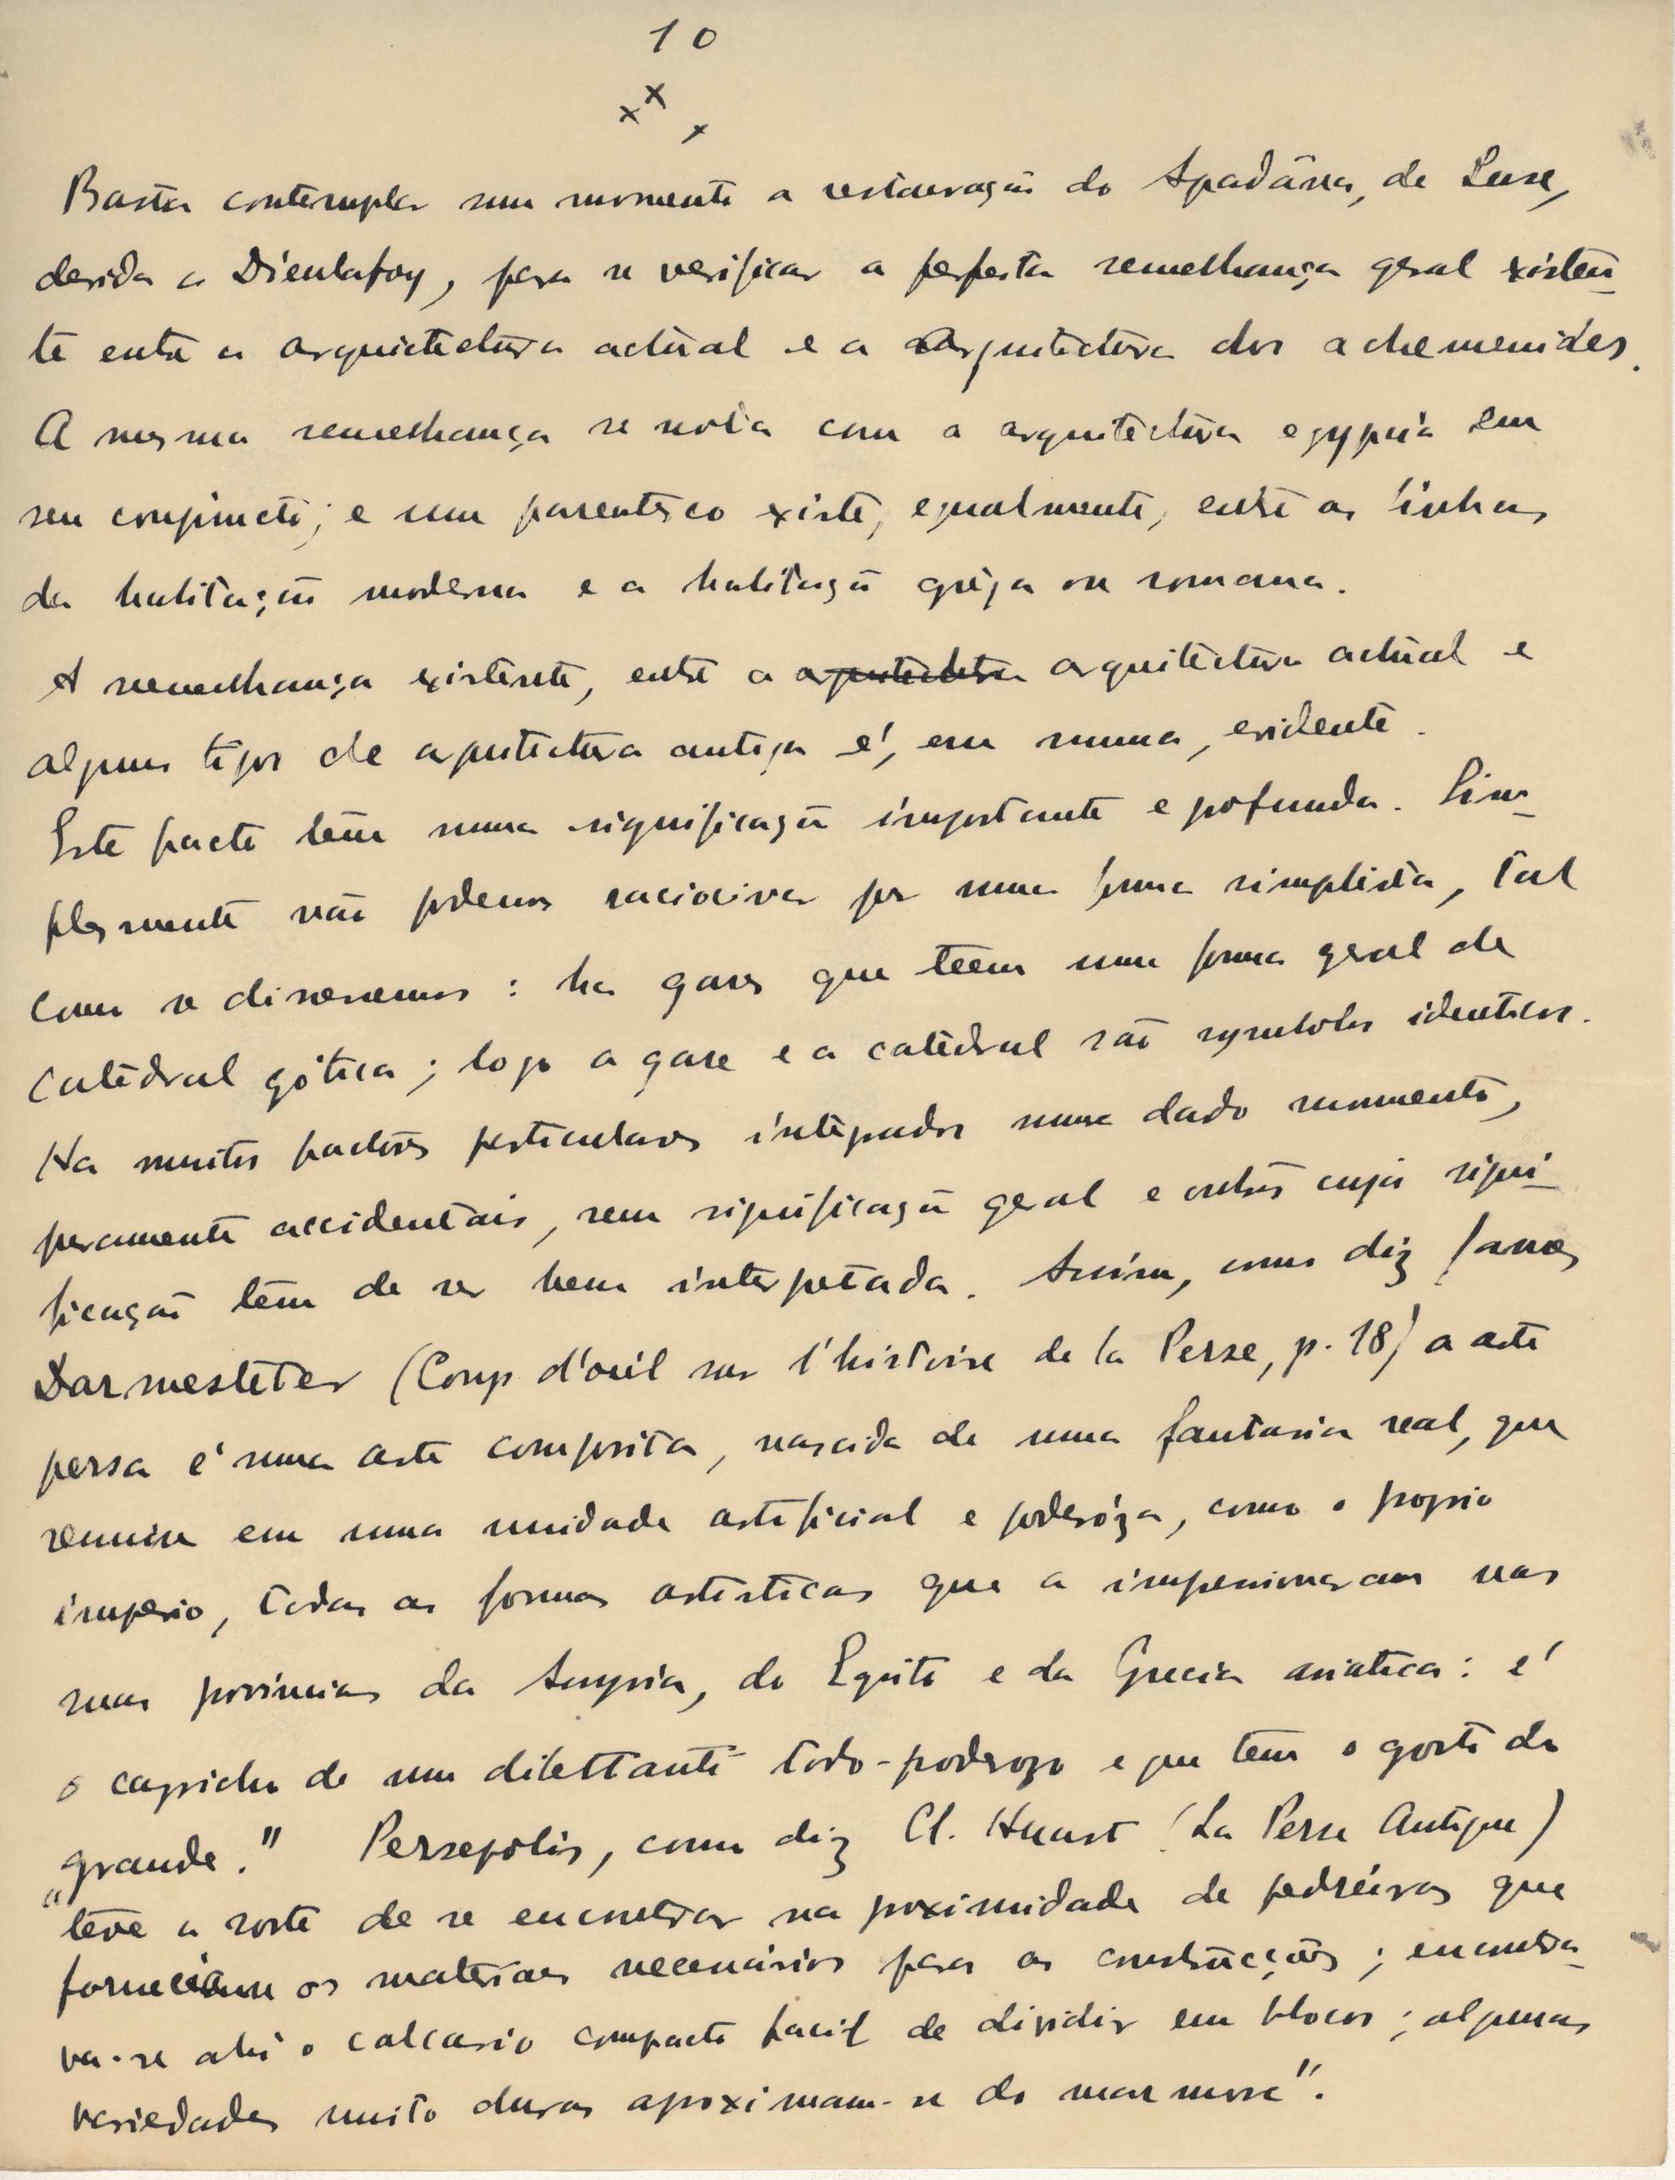 10
x x x
Basta contemplar um momento a restauração do Apadâna, de Suse,
devida a Dieulafoy, para se verificar a perfeita semelhança geral existen-
te entre a arquictectura actual e a arquitectura dos achemenides.
A mesma semelhança se nota com a arquitectura egypcia em
seu conjuncto; e um parentesco existe, egualmente, entre as linhas
da habitação moderna e a habitação grega ou romana.
A semelhança existente, entre a arquitectura arquitectura actual e
alguns tipos de arquitectura antiga é, em summa, evidente.
Este facto têm uma significação importante e profunda. Sim-
plesmente não podemos raciocinar por uma forma simplista, tal
como se dissessemos: ha gares que teem uma forma geral de
catedral gótica; logo a gare e a catedral são symbolos identicos.
Ha muitos factores particulares integrados num dado momento,
puramente accidentais, sem significação geral e outros cuja signi-
ficação têm de ser bem interpretada. Assim, como diz James
Darmesteter (Coup d'oeil sur l'histoire de la Perse, p. 18) a arte
persa é uma arte composita, nascida de uma fantasia real, que
reuniu em uma unidade artificial e poderóza, como o proprio
imperio, todas as formas artisticas que a impressionaram nas
suas provincias da Assyria, do Egito e da Grecia asiatica: é
o capricho de um dilettante todo-poderozo e que tem o gosto do
grande." Persepolis, como diz Cl. Huart (La Perse Antique)
"teve a sorte de se encontrar na proximidade de pedreiras que
forneciam os materiaes necessários para as construcções; encontra-
va-se ahi o calcario compacto facil de dividir em blocos; algumas
variedades muito duras aproximam-se do marmore".